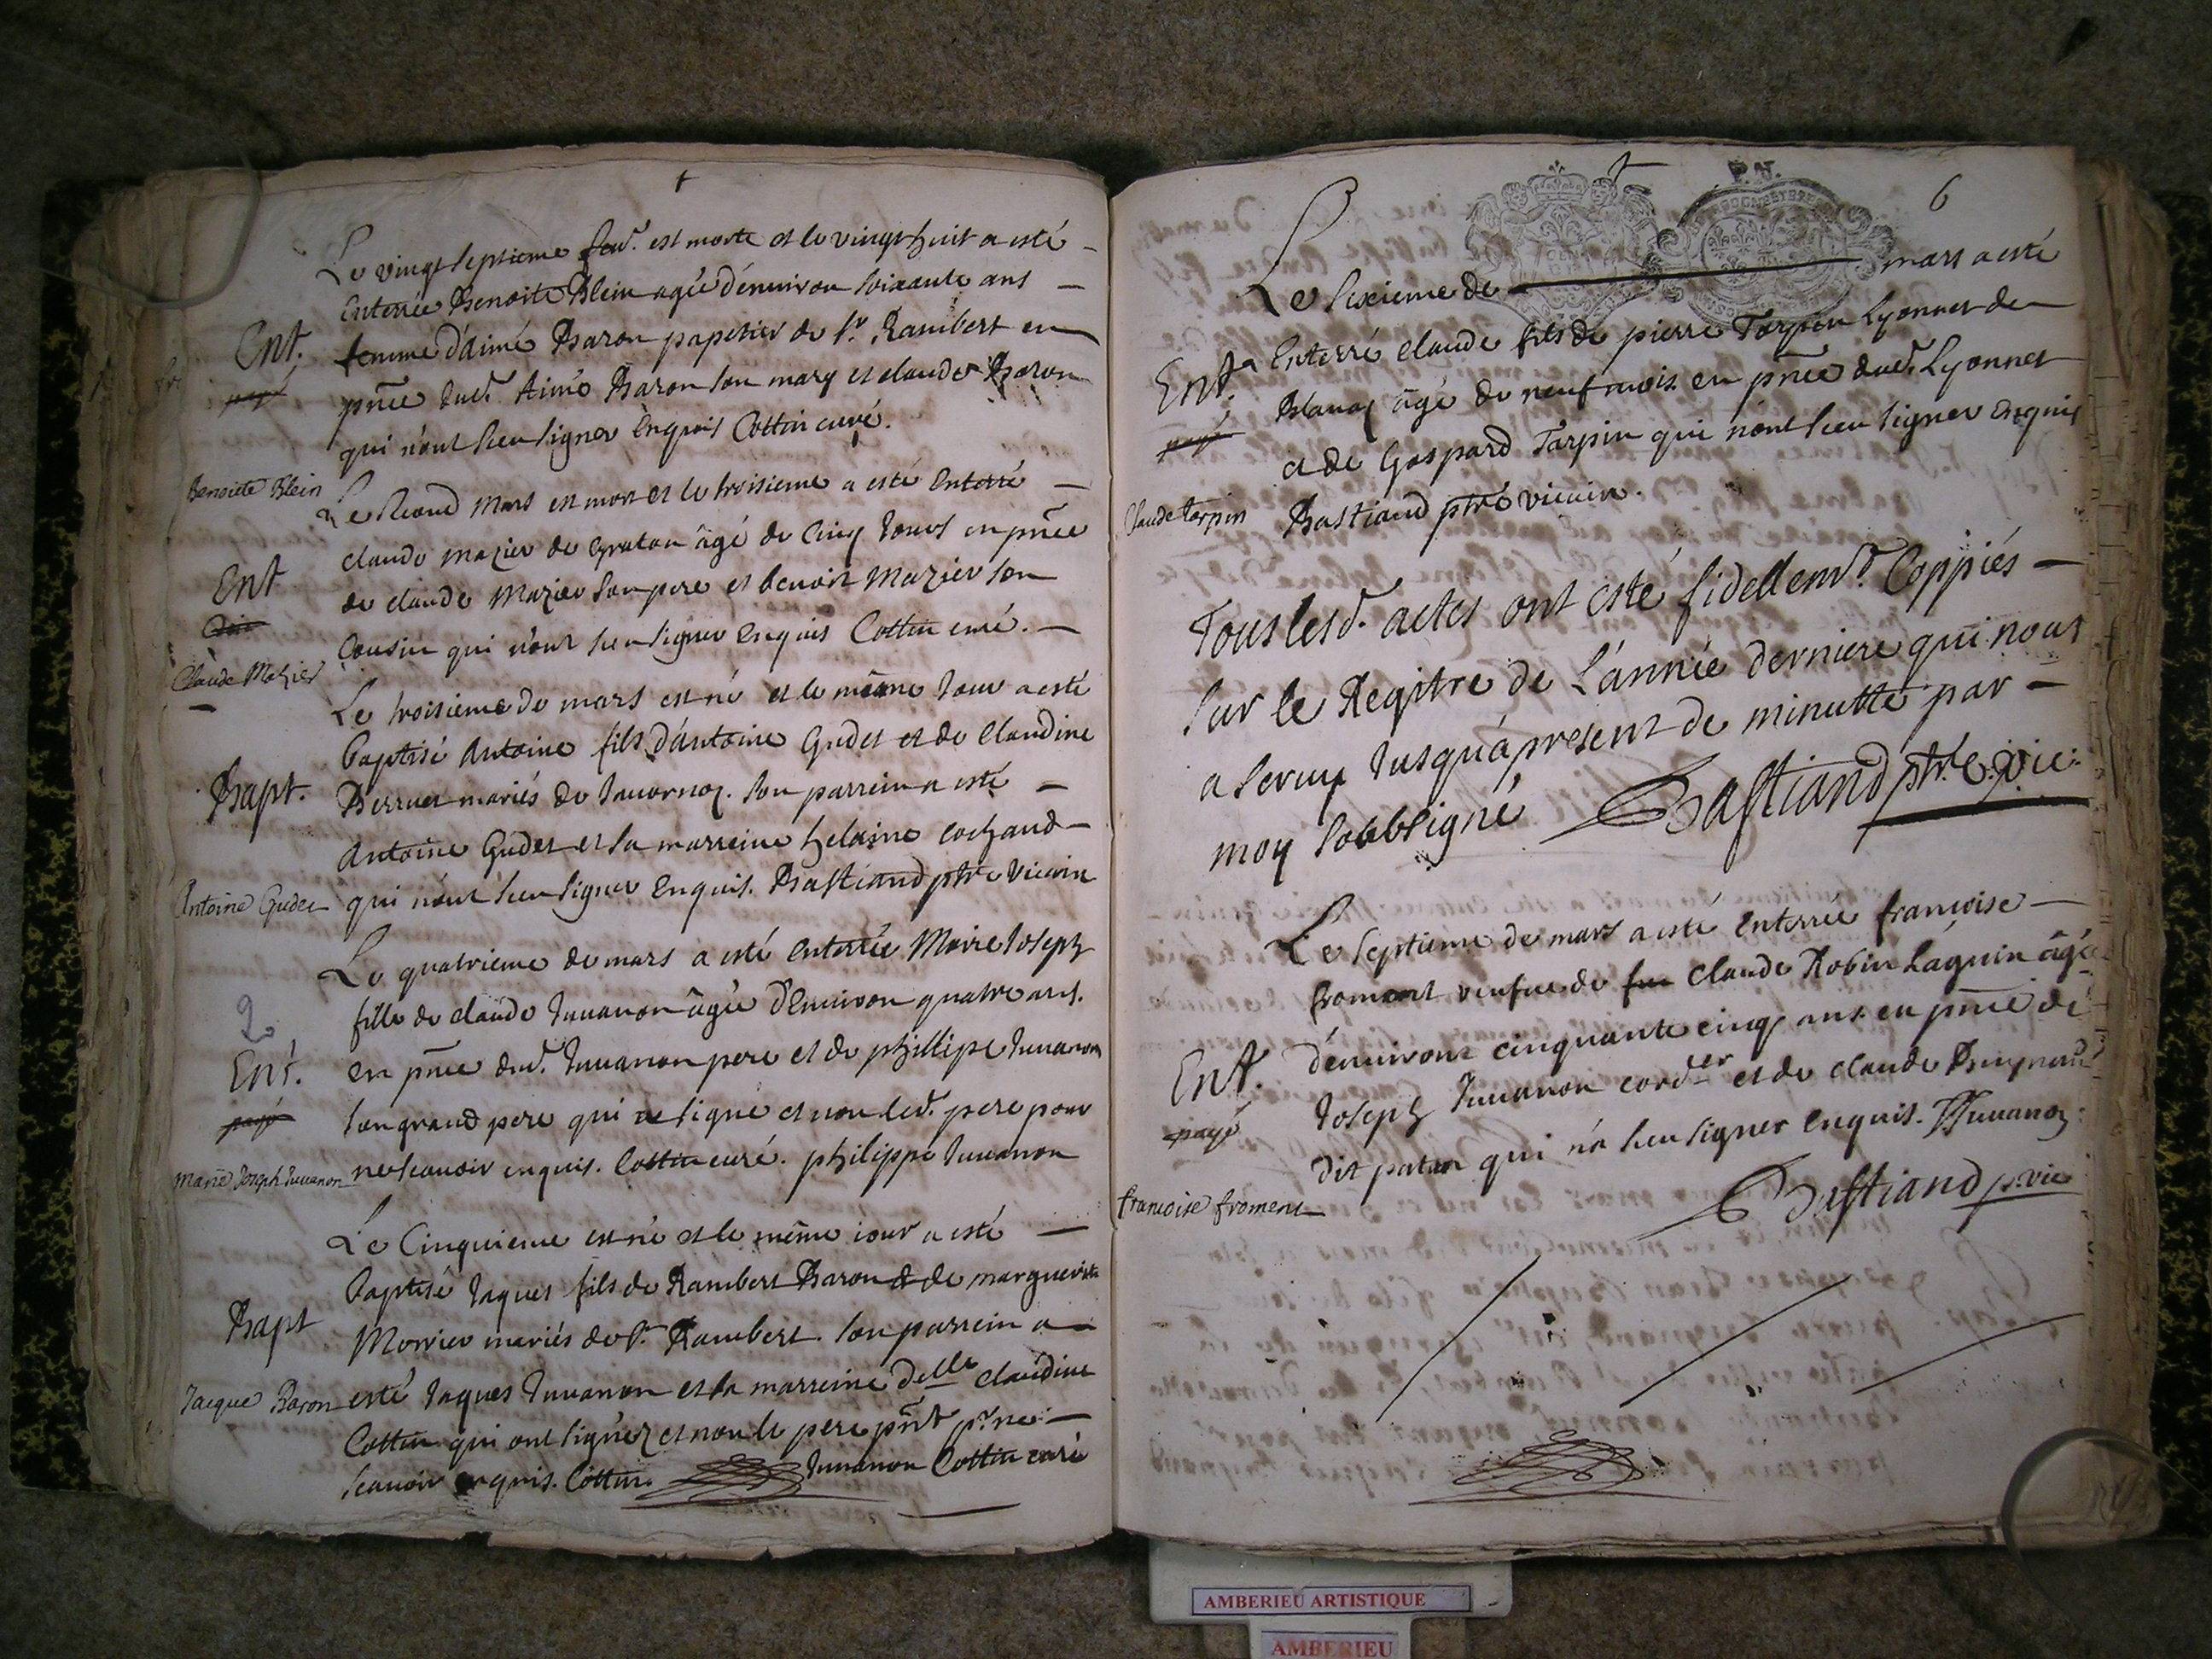 Le vingt septieme fevr. est morte et le vingt huit a esté
Enterrée Benoite Blein agée d'environ soixante ans
Ent.
femme d'aimé Baron papetier de St. Rambert en
payé
pñce dud. Aimé Baron son mary et claude Baron
qui n'ont sceu signer Enquis Cottin curé.
Benoite Blein
Le second Mars est mort et le troisieme a esté Enterré
claude mazier de âgé de Cinq Jours en pñce
Ent
de claude Mazier son pere et benoit Mazier son
Cousin qui n'ont sceu signer Enquis Cottin curé.
Claude Mazier
Le troisieme de mars est né et le même Jour a esté
Baptisé Antoine fils d'antoine Gudet et de Claudine
Bapt.
mariés de Javornoz. son parrein a esté
Antoine Gudet et sa marreine helaine cochand
Antoine Gudet
qui n'ont sceu signer Enquis. Bastiand ptre vicaire
Le quatrieme de mars a esté enterrée Marie Joseph
2
fille de claude Juvanon âgée d'Environ quatre ans.
Ent.
en pñce dud. Juvanon pere et de phillipe Juvanon
payé
son grand pere qui a signé et non led. pere pour
Marie Joseph Juvanon
ne scavoir enquis. Cottin curé. philippe Juvanon
Le Cinquieme est né et le même iour a esté
Baptisé Jaques fils de Rambert Baron & de marguerite
Bapt
Morrier mariés de St. Rambert. son parrein a
Jacque Baron
esté Jaques Juvanon et la marreine Delle claudine
Cottin qui ont signez et non le pere pñt pr. ne
scavoir enquis. Cottin. Juvanon Cottin curé
P.N.
6
Le sixieme de mars a esté
Ent.
Enterré claude fils de pierre Tarpin Lyonnet de
payé
Blanaz âgé de neuf mois en pñce dud. Lyonnet
et de Gaspard Tarpin qui n'ont sceu signer enquis
Claude tarpin
Bastiand ptre vicaire.
Tous lesd. actes ont esté fidellemt. Coppiés
sur le Regitre de L'année derniere qui nous
a servy Jusqu'a present de minutte par
moy soubsigné Bastiand ptre. vic.
Le septieme de mars a esté Enterrée françoise
froment veufve de feu Claude Robin Laguin âgée
Ent.
d'environt cinquante cinq ans en pñce de
payé
Joseph Juvanon cordier et de claude
dit patan qui n'a sceu signer enquis. Juvanon
françoise froment
Bastiand p. vic
AMBERIEU ARTISTIQUE
AMBERIEU